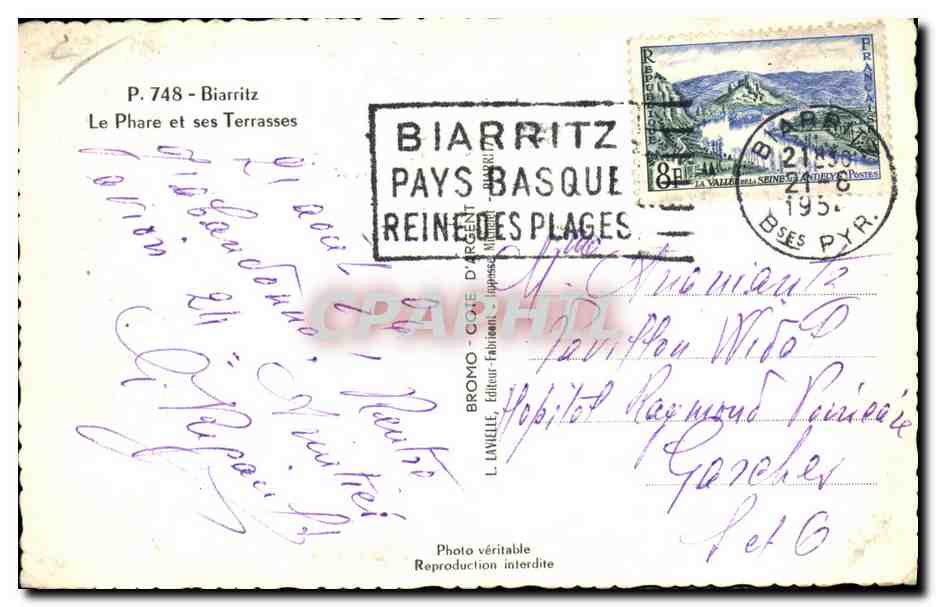 P. 748 - Biarritz
Le Phare et ses Terrasses
BIARRITZ
PAYS BASQUE
REINE DES PLAGES
REPUBLIQUE FRANCAISE
8F
LA VALLÉE DE LA SEINE AUX ANDELYS
POSTES
BIARRITZ
21-8
195
BSES PYR.
21 août
Rentre
avion 24
Amitiés
BROMO - COTE D'ARGENT
L. LAVIELLE, Editeur-Fabricant - Impasse BIARRITZ
Pavillon Widal
Hopital Raymond Poincaré
Garches
S et O
CPAPHIL
Photo véritable
Reproduction interdite